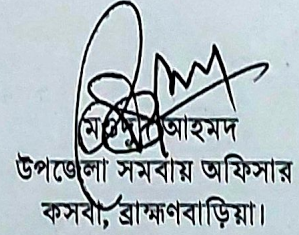 আহমদ
উপজেলা সমবায় অফিসার
কসবা, ব্রাহ্মণবাড়িয়া।